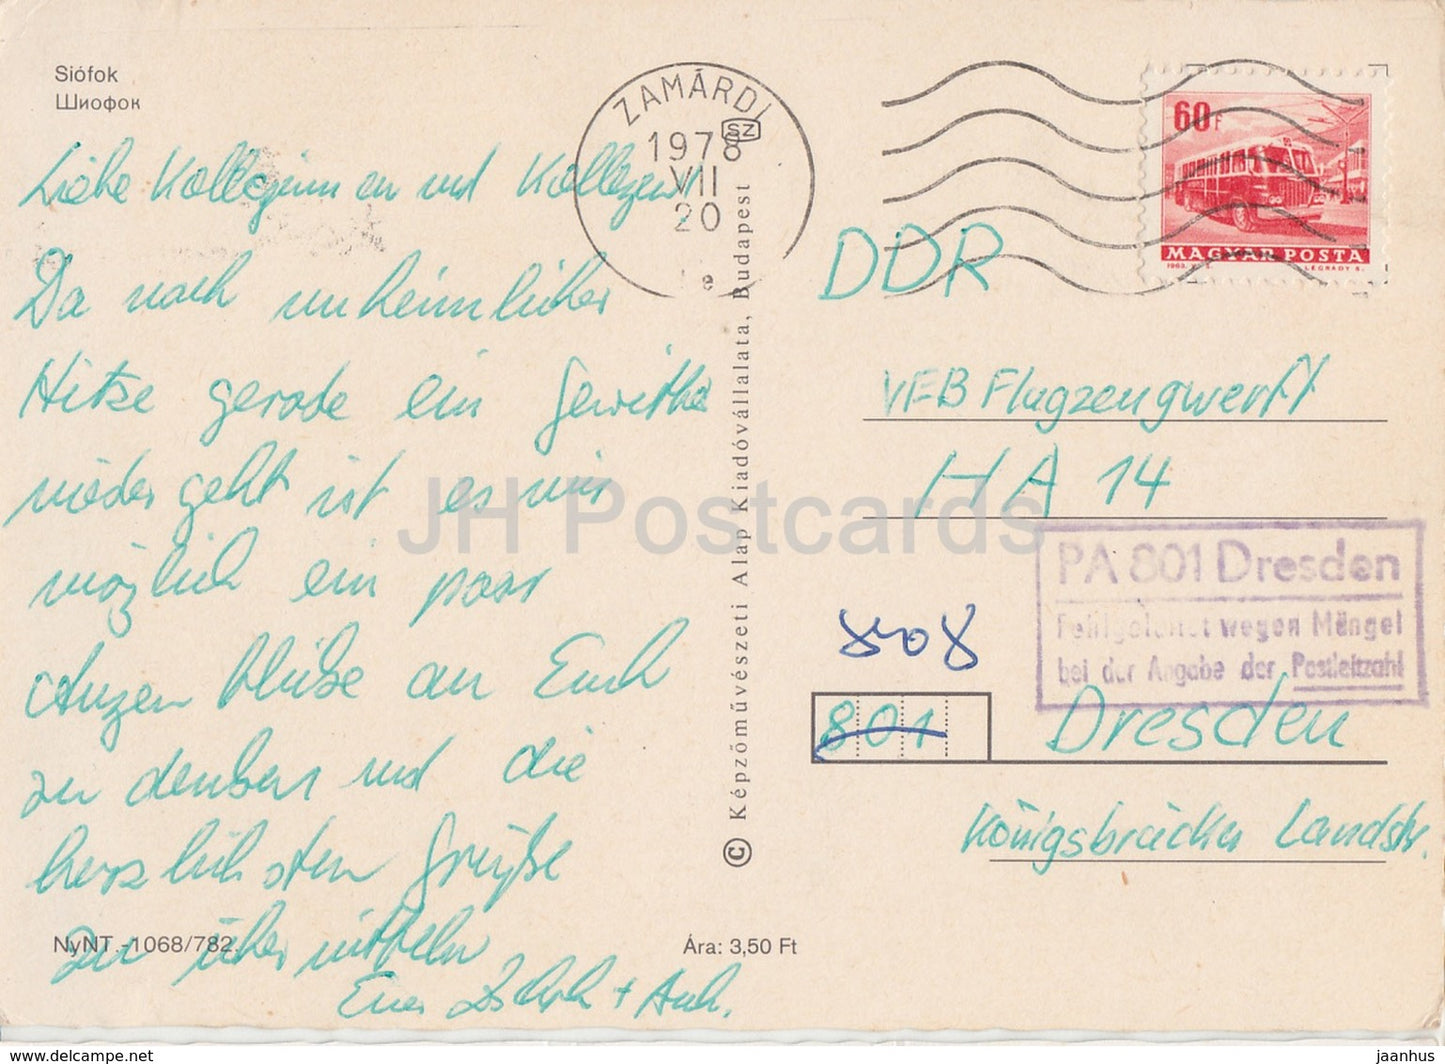 Siófok
Шиофок
Liebe Kolleginnen und Kollegen!
Da nach unheimlicher
Hitze gerade ein Gewitter
nieder geht ist es mir
möglich ein paar
Augen blicke an Euch
zu denken und die
herzlichsten Grüße
zu über mitteln
Euer + 
NyNT.-1068/782.
Ára: 3,50 Ft
© Képzőművészeti Alap Kiadóvállalata, Budapest
ZAMÁRDI
SZ
1978
VII
20
e
60f
MAGYAR POSTA
1963
LÉGRÁDY S.
DDR
VEB Flugzeugwerft
HA 14
PA 801 Dresden
Fehlgeleitet wegen Mängel
bei der Angabe der Postleitzahl
8408
801 Dresden
Königsbrücker Landstr.
JH Postcards
www.delcampe.net
jaanhus